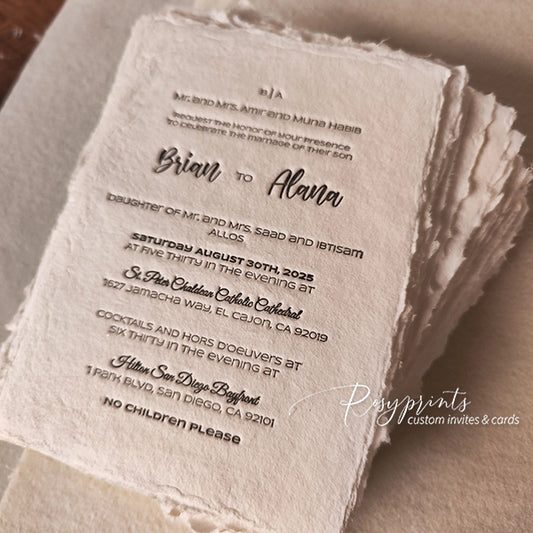 B | A
Mr. and Mrs. Amir and Muna Habib
request the honor of your presence
to celebrate the marriage of their son
Brian to Alana
daughter of Mr. and Mrs. Saad and Ibtisam
Allos
Saturday August 30th, 2025
at five thirty in the evening at
St. Peter Chaldean Catholic Cathedral
1627 Jamacha Way, El Cajon, CA 92019
Cocktails and hors d'oeuvers at
six thirty in the evening at
Hilton San Diego Bayfront
1 Park Blvd, San Diego, CA 92101
No children please
Rosyprints
custom invites & cards